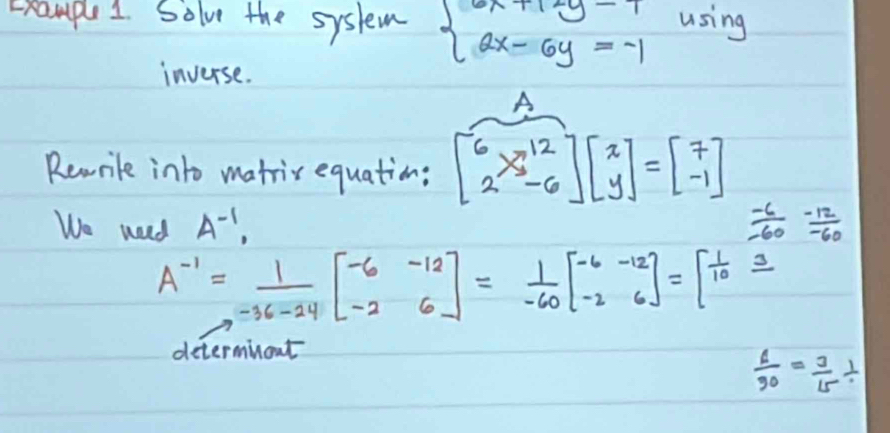 Example 1. Solve the system { 6x + 12y = 7 using
2x - 6y = -1
inverse.
A
Rewrite into matrix equation: [6 12; 2 -6] [x; y] = [7; -1]
We need A⁻¹.
-6/-60 -12/-60
A⁻¹ = 1/(-36-24) [-6 -12; -2 6] = 1/-60 [-6 -12; -2 6] = [1/10 3
determinant
6/30 = 3/15 ÷